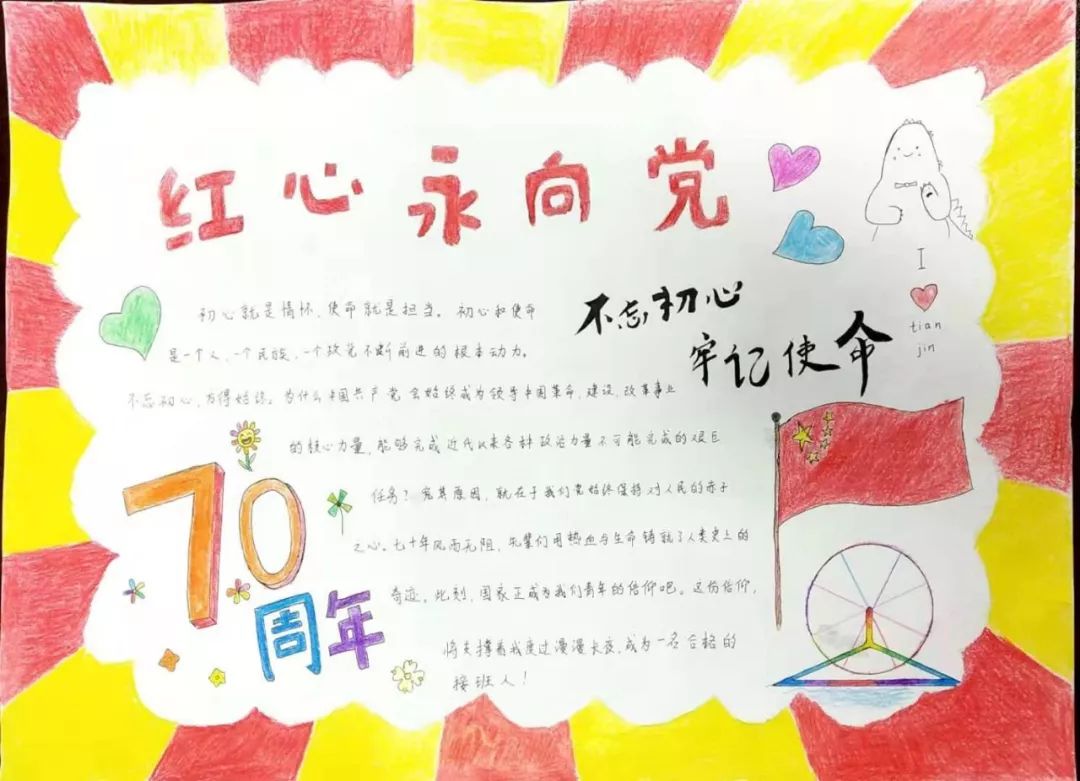 红心永向党
I
tian
jin
不忘初心
牢记使命
初心就是情怀,使命就是担当。初心和使命
是一个人,一个民族,一个政党不断前进的根本动力。
不忘初心,方得始终。为什么中国共产党会始终成为领导中国革命,建设,改革事业
的核心力量,能够完成近代以来各种政治力量不可能完成的艰巨
任务?究其原因,就在于我们党始终保持对人民的赤子
之心。七十年风雨无阻,先辈们用热血与生命铸就了人类史上的
奇迹。此刻,国家正成为我们青年的信仰吧。这份信仰,
将支撑着我度过漫漫长夜,成为一名合格的
接班人!
70
周年